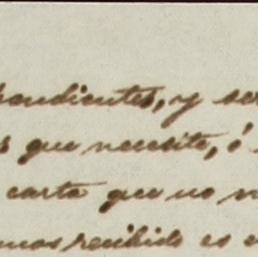 pendientes, y se
s que necesite, ó
carta que no n
mos recibido es